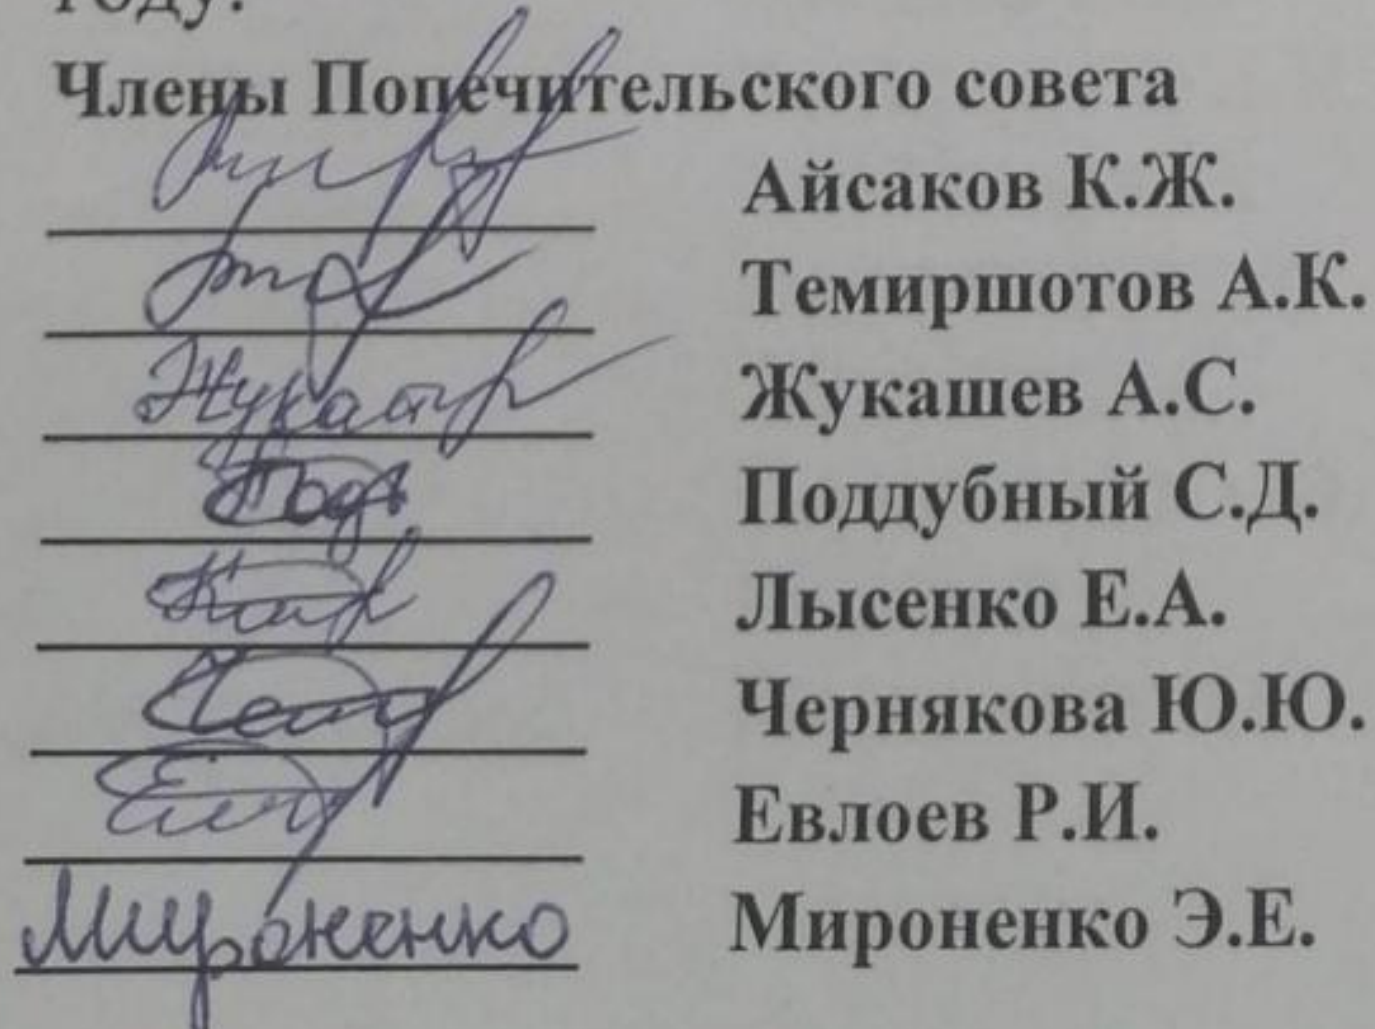 году.
Члены Попечительского совета
Айсаков К.Ж.
Темиршотов А.К.
Жукашев А.С.
Поддубный С.Д.
Лысенко Е.А.
Чернякова Ю.Ю.
Евлоев Р.И.
Мироненко Мироненко Э.Е.